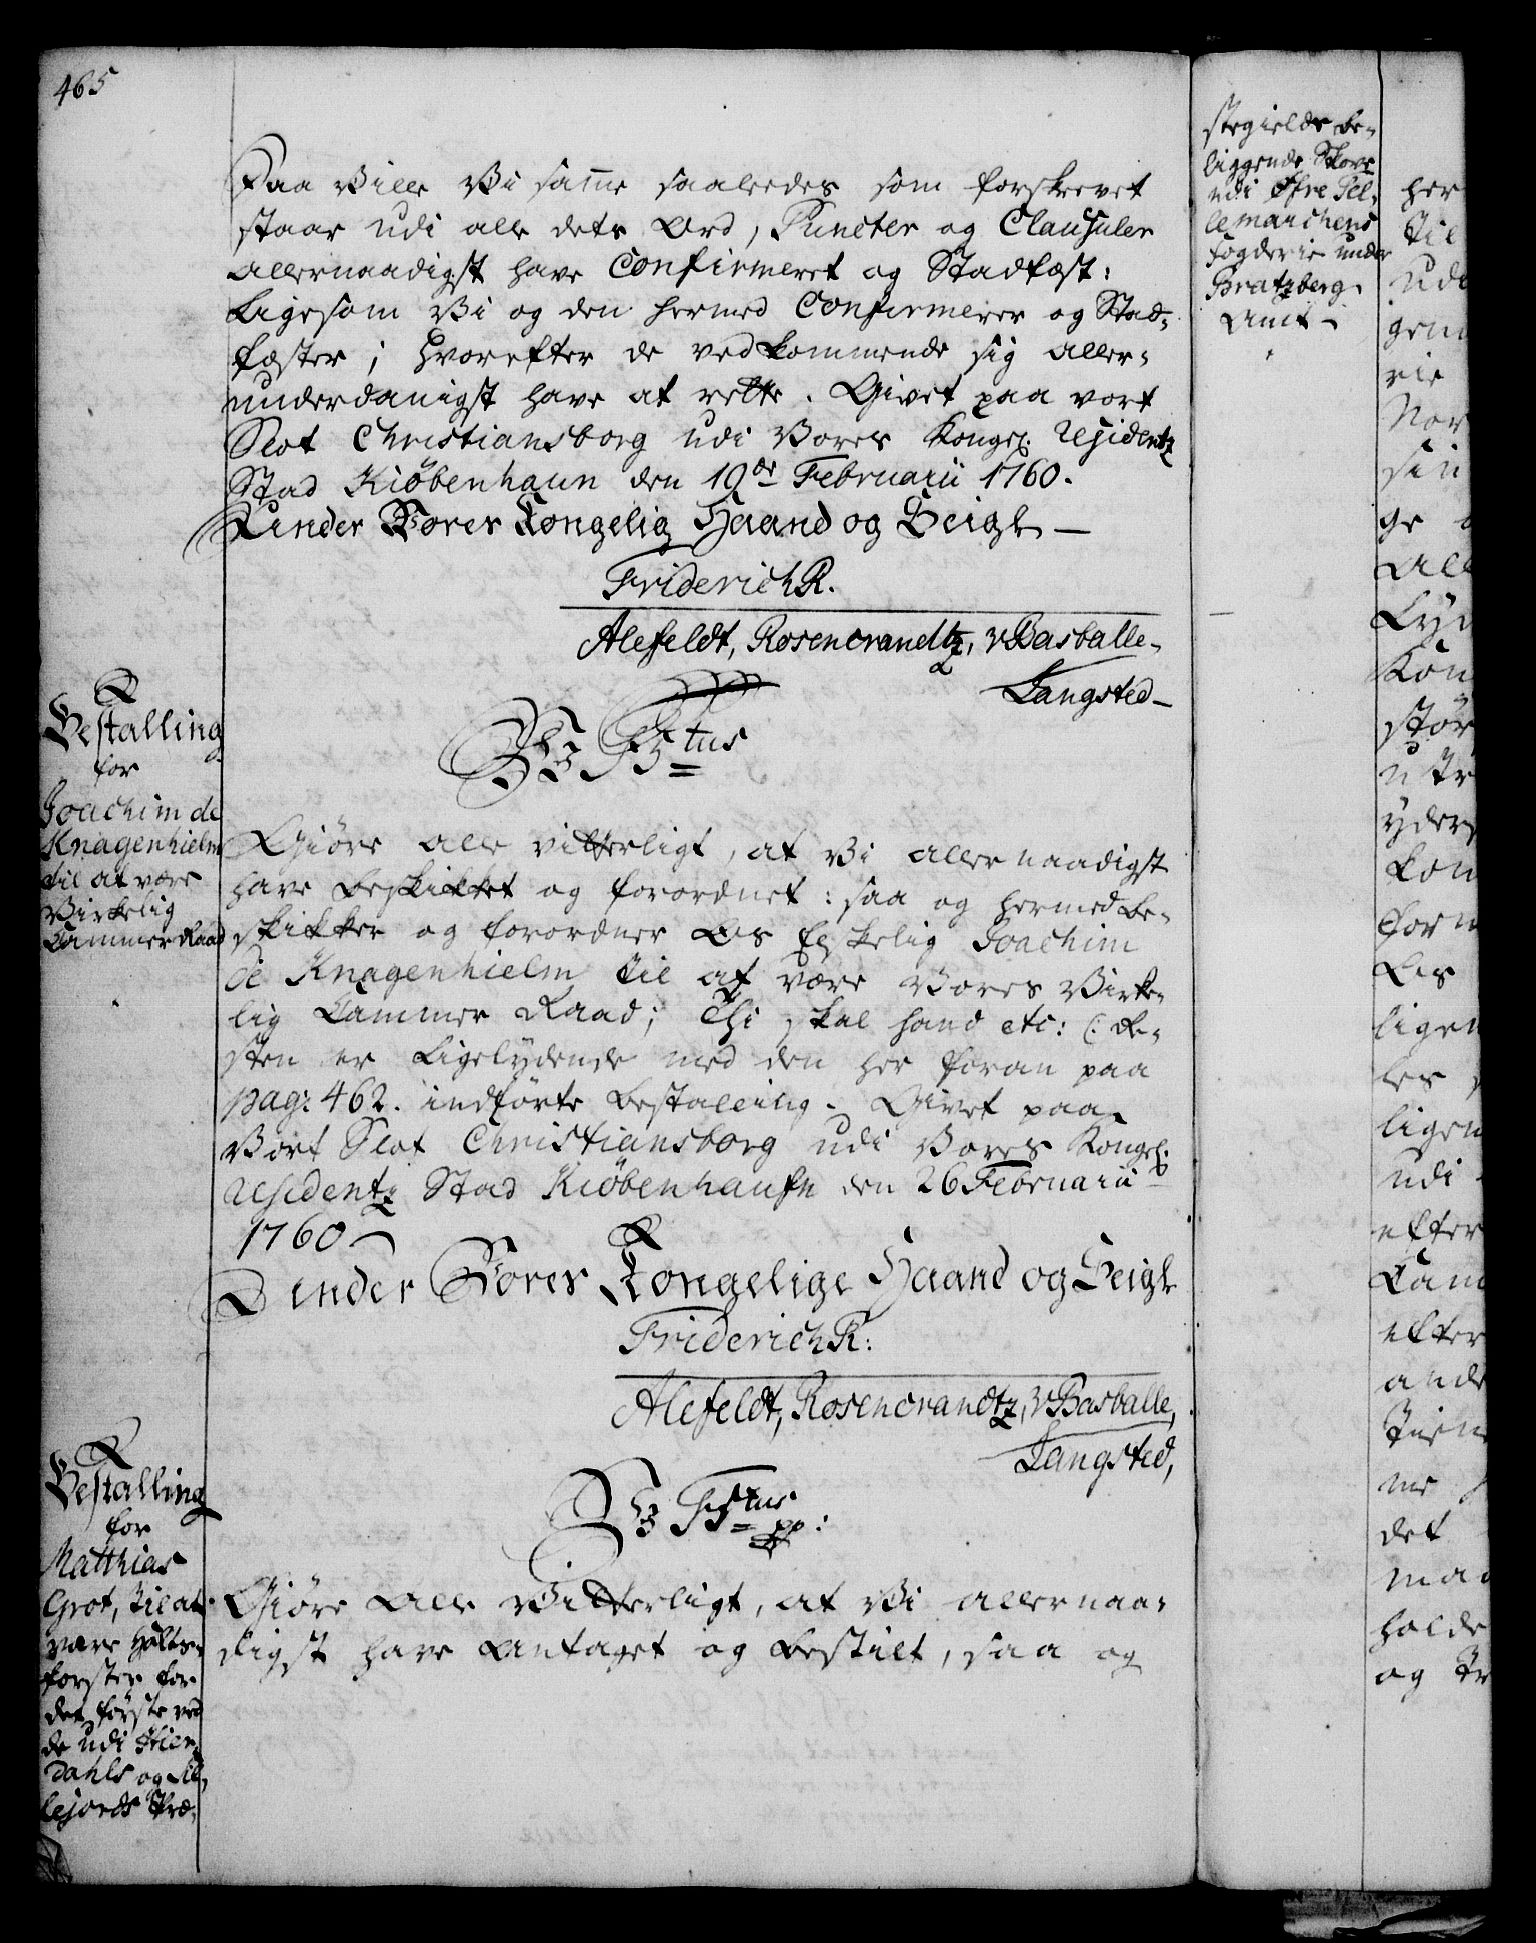 465
Saa Ville Vi samme saaledes som forskrevet
staar udi alle dets Ord, Puncter og Clausuler
allernaadigst have Confirmeret og Stadfæst:
Ligesom Vi og den hermed Confirmerer og Stad-
fæster; hvorefter de vedkommende sig aller-
underdanigst have at rette. Givet paa vort
Slot Christiansborg udi Vores Kongel. Residentz
Stad Kiöbenhaun den 19de Februarii 1760.
Under Vores Kongelig Haand og Seigl
Friderich R.
Alefeldt, Rosencrandtz, v Basballe,
Langsted
Bestalling
for
Joachim de
Knagenhielm
til at være
Virkelig
Cammer Raad
V F 5tus
Giöre alle vitterligt, at Vi allernaadigst
have beskikket og forordnet: saa og hermed be-
skikker og forordner Os Elskelig Joachim
de Knagenhielm til at være Vores Virke-
lig Cammer Raad; Thi skal hand etc: (: Re-
sten er Ligelydende med den her foran paa
pag: 462. indförte bestalling. Givet paa
Vort Slot Christiansborg udi Vores Kongel.
Residentz Stad Kiöbenhaufn den 26 Februarii
1760
Under Vores Kongelige Haand og Seigl
Friderich R:
Alefeldt, Rosencrandtz, v Basballe,
Langsted,
Bestalling
for
Matthias
Grot, til at
være Holtz-
förster for
det förste ved
de udi Hier-
dahls og Sil-
lejords Præ-
V F 5tus pp:
Giöre Alle Vitterligt, at Vi allernaa-
digst have Antaget og bestilt, saa og
stegields be-
liggende Skove
udi Øfre Tel-
lemarchens
Fogderie under
Bratzberg
Amt
her
til
udi
gem
rie
Nor
sin
ge
All
Lyd
Kon
stör
u
yders
kom
form
Os
ligen
les
ligen
udi
efter
Cam
efter
ande
tien
me
det
maa
holde
og